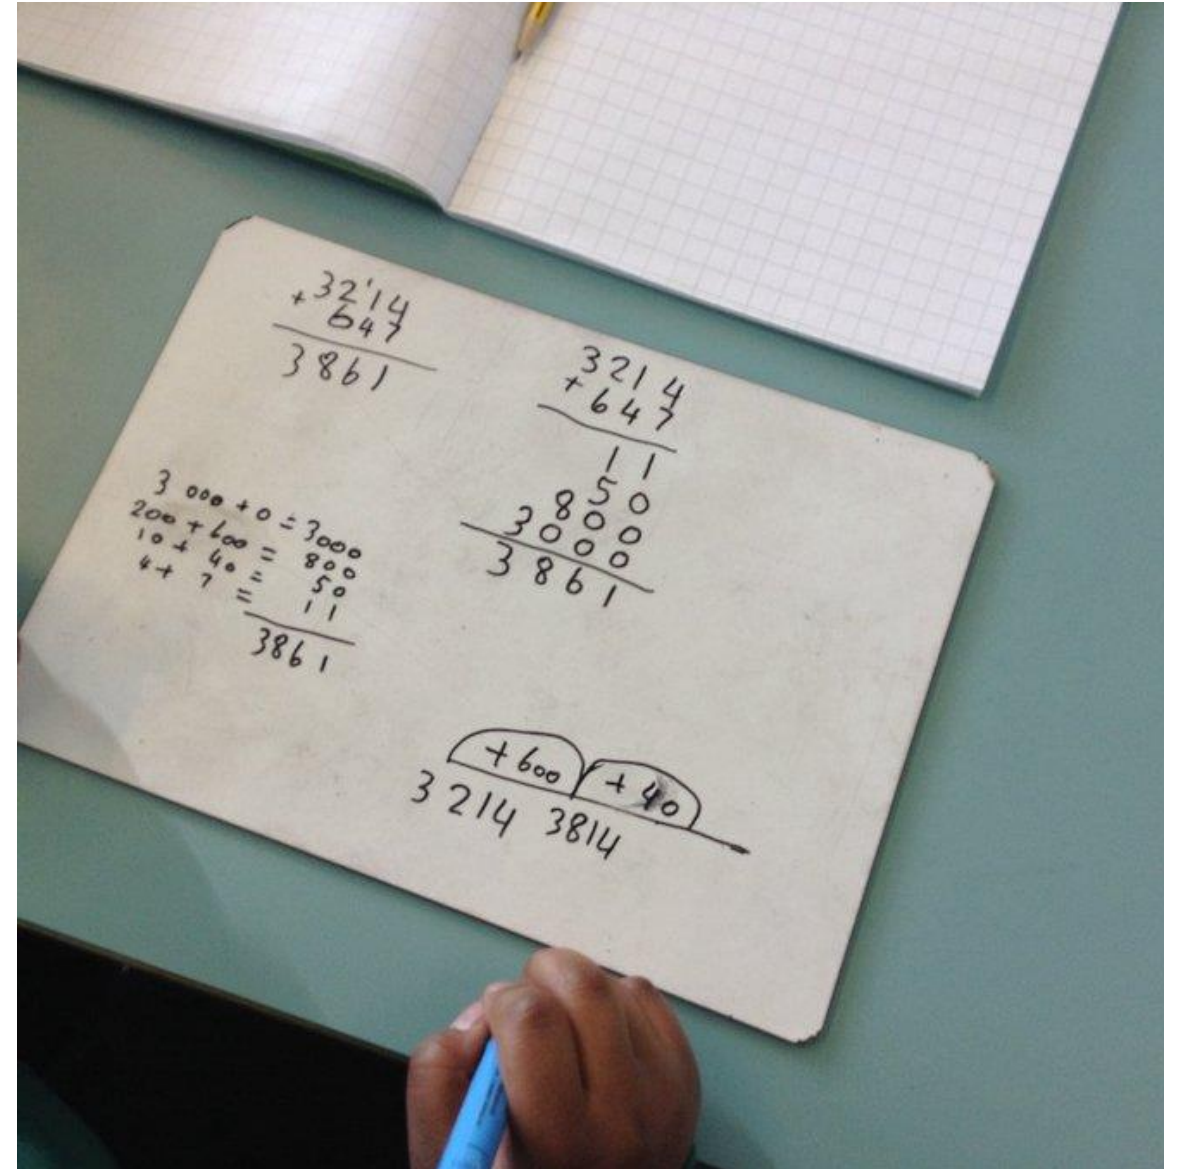 32'14
+ 647
3861
3214
+ 647
11
850
3000
3861
3 000 + 0 = 3000
200 + 600 = 800
10 + 40 = 50
4 + 7 = 11
3861
+600 +40
3214 3814